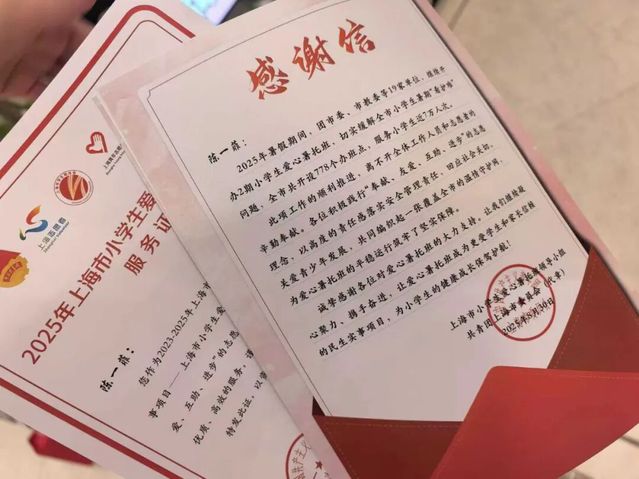 感谢信
陈一萌:
2025年暑假期间,团市委、市教委等19家单位,继续开
办2期小学生爱心暑托班,切实缓解全市小学生暑期“看护难”
问题。全市共开设778个办班点,服务小学生近7万人次。
此项工作的顺利推进,离不开全体工作人员和志愿者的
辛勤奉献。各位积极践行“奉献、友爱、互助、进步”的志愿
理念,以高度的责任感落实安全管理责任,回应社会关切、
关爱青少年发展,共同编织起一张覆盖全市的温情守护网,
为爱心暑托班的平稳运行筑牢了坚实保障。
诚挚感谢各位对爱心暑托班的大力支持。让我们继续凝
心聚力、携手奋进,让爱心暑托班成为更受学生和家长信赖
的民生实事项目,为小学生的健康成长保驾护航!
上海市小学生爱心暑托班领导小组
共青团上海市委员会(代章)
2025年8月30日
上海志愿者
2025年上海市小学生爱
服务证
陈一萌:
您作为2023-2025年上海市
事项目——上海市小学生爱
爱、互助、进步的志愿
优质、高效的服务,谨
特发此证,以资